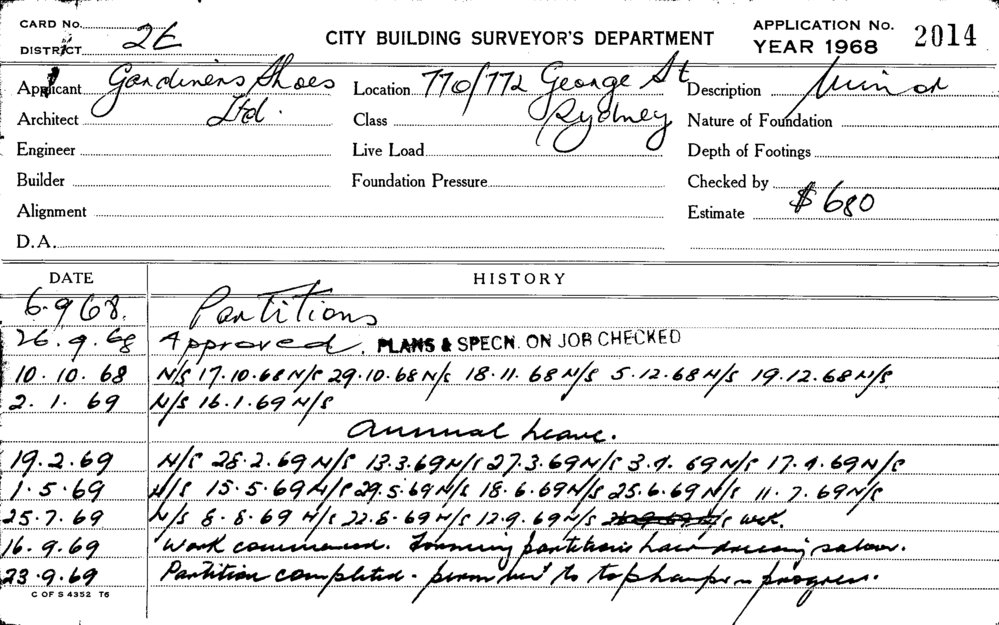 CARD No.
DISTRICT 2E
CITY BUILDING SURVEYOR'S DEPARTMENT
APPLICATION No. 2014
YEAR 1968
Applicant Gardiners Shoes Ltd.
Location 770/772 George St Sydney
Description Minor
Architect
Class
Nature of Foundation
Engineer
Live Load
Depth of Footings
Builder
Foundation Pressure
Checked by
Alignment
Estimate $680
D.A.
DATE HISTORY
6.9.68. Partitions
26.9.68 Approved. PLANS & SPECN. ON JOB CHECKED
10.10.68 N/S 17.10.68 N/S 29.10.68 N/S 18.11.68 N/S 5.12.68 N/S 19.12.68 N/S
2.1.69 N/S 16.1.69 N/S
Annual Leave.
19.2.69 N/S 28.2.69 N/S 13.3.69 N/S 27.3.69 N/S 3.4.69 N/S 17.4.69 N/S
1.5.69 N/S 15.5.69 N/S 29.5.69 N/S 18.6.69 N/S 25.6.69 N/S 11.7.69 N/S
25.7.69 N/S 8.8.69 N/S 22.8.69 N/S 12.9.69 N/S
16.9.69 Work commenced. Forming partitions hair dressing saloon.
23.9.69 Partition completed. to progress.
C OF S 4352 T6